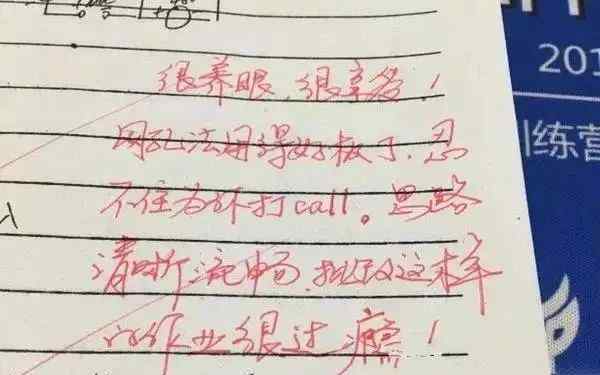 201
训练营
很养眼,很享受!
网孔法用得好极了,忍
不住为你打call。思路
清晰流畅,批改这样
的作业很过瘾!